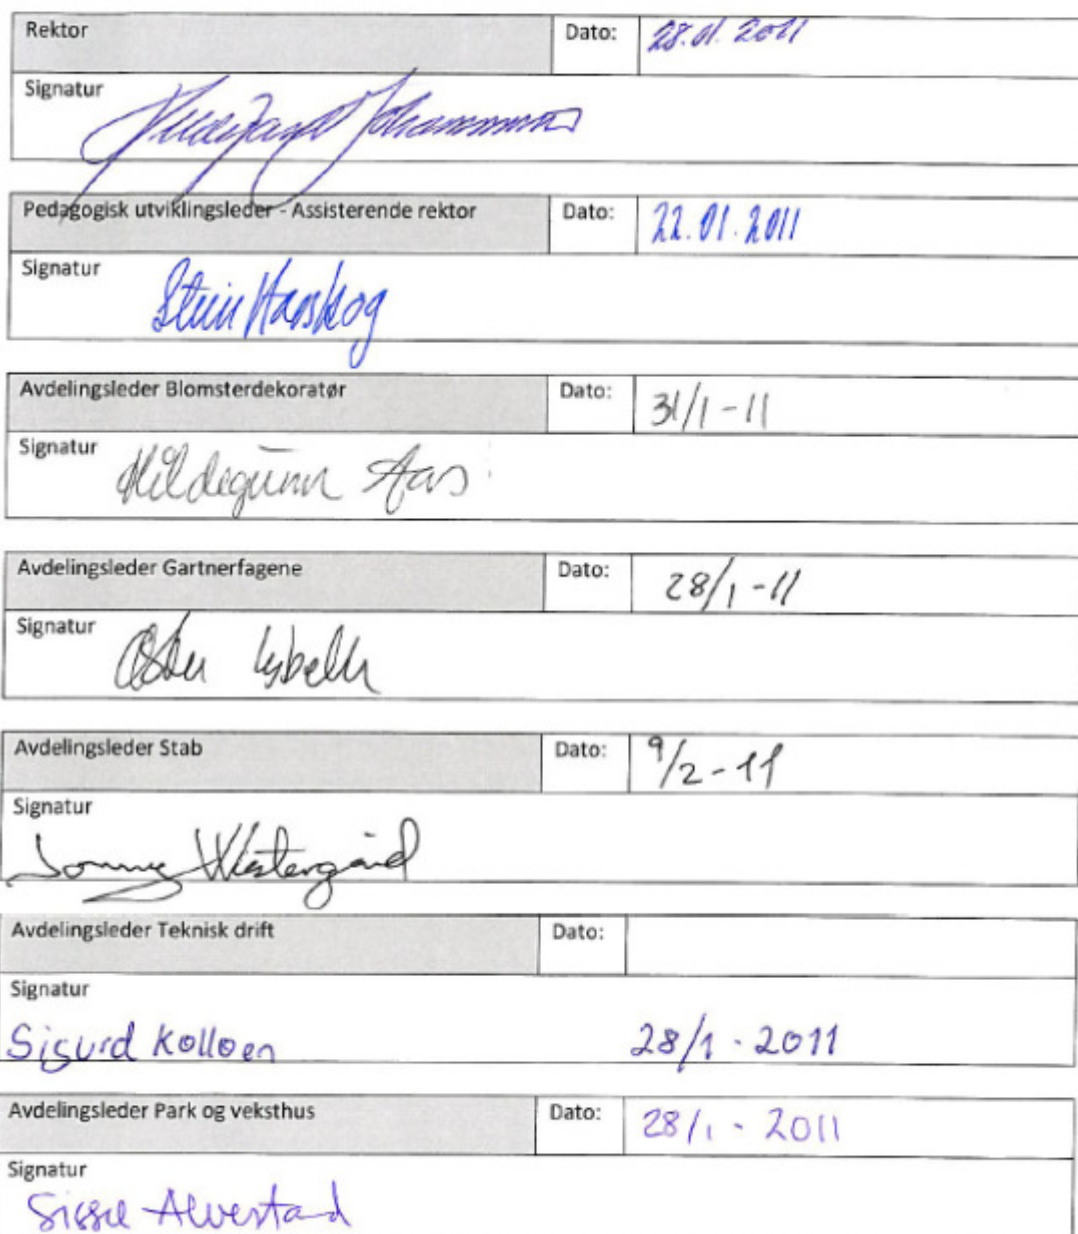 Rektor Dato: 28.01.2011
Signatur
Pedagogisk utviklingsleder - Assisterende rektor Dato: 22.01.2011
Signatur Stein
Avdelingsleder Blomsterdekoratør Dato: 31/1-11
Signatur Hildegunn Aas
Avdelingsleder Gartnerfagene Dato: 28/1-11
Signatur
Avdelingsleder Stab Dato: 9/2-11
Signatur
Jonny Westergård
Avdelingsleder Teknisk drift Dato:
Signatur
Sigurd Kolloen 28/1-2011
Avdelingsleder Park og veksthus Dato: 28/1-2011
Signatur
Sissel Alvestad